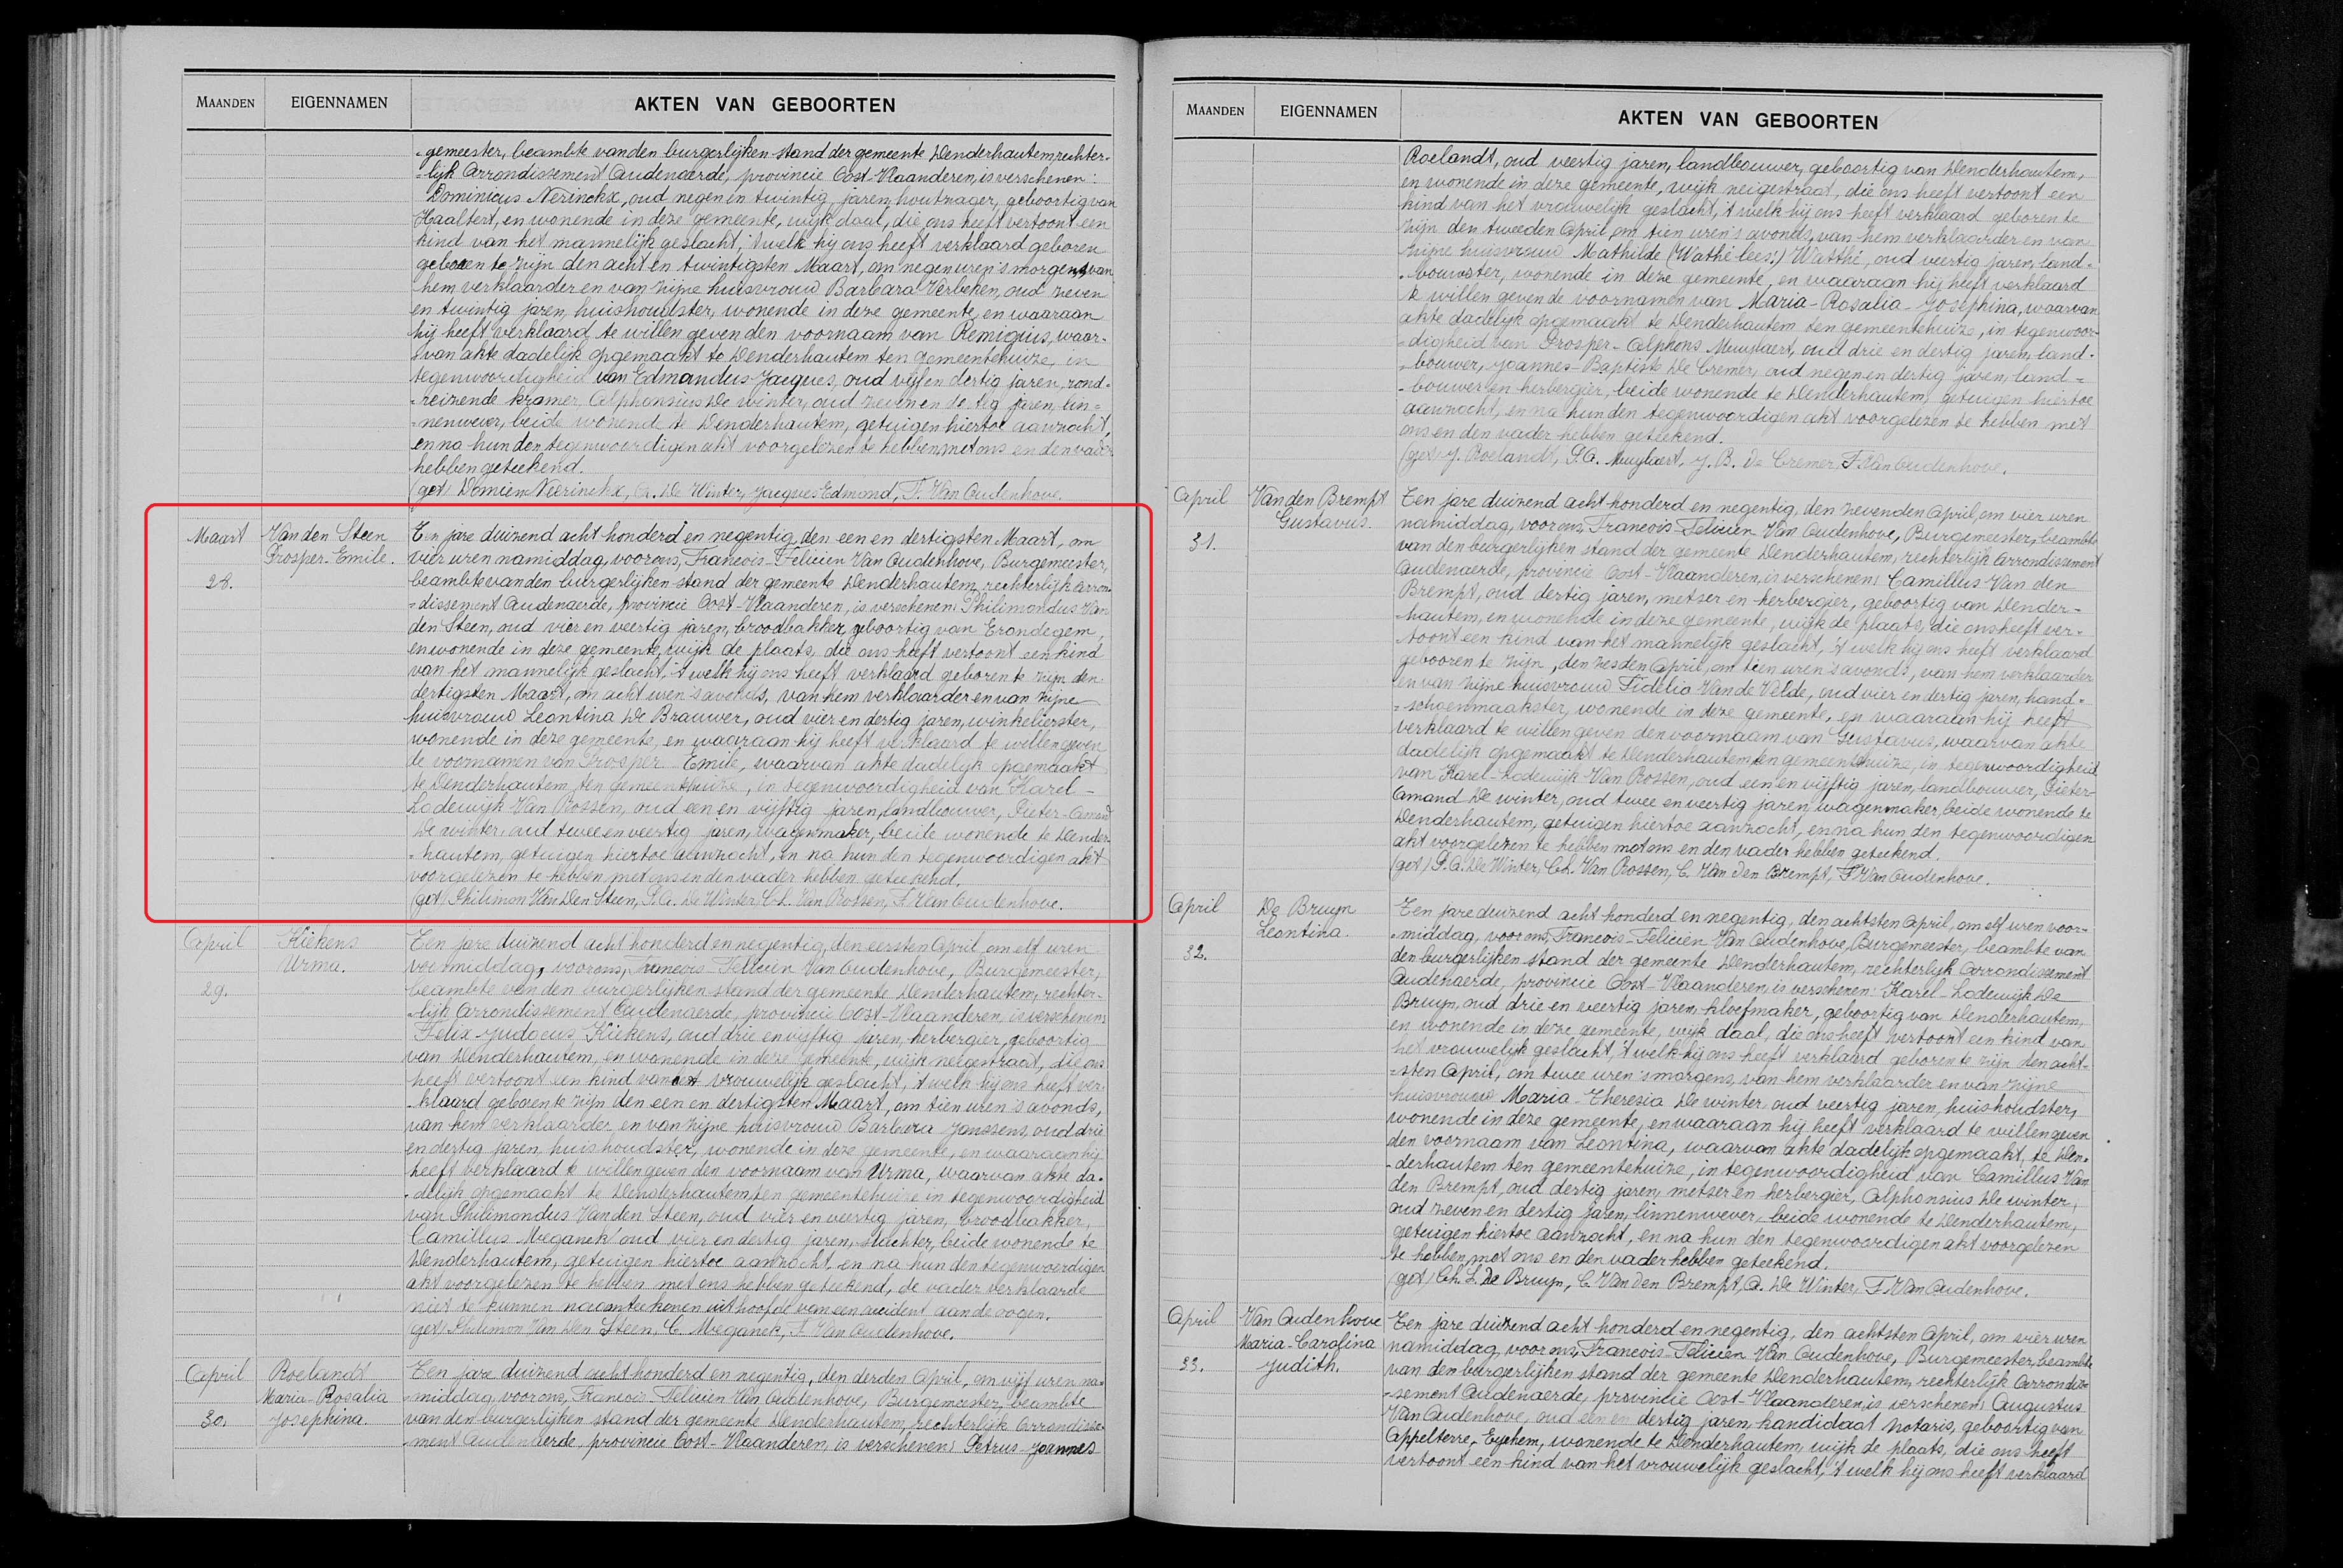 MAANDEN EIGENNAMEN AKTEN VAN GEBOORTEN
gemeester, beambte van den burgerlijken stand der gemeente Denderhautem, rechter-
-lijk Arrondissement Audenaerde, provincie Oost-Vlaanderen, is verschenen:
Dominicus Nerinckx, oud negen in twintig jaren, houtzager, geboortig van
Haaltert, en wonende in deze gemeente, wijk daal, die ons heeft vertoont een
kind van het mannelijk geslacht, 't welk hij ons heeft verklaard geboren
geboren te zijn den acht en twintigsten Maart, om negen uren 's morgens, van
hem verklaarder en van zijne huisvrouw Barbara Verbeken, oud zeven
en twintig jaren, huishoudster, wonende in deze gemeente, en waaraan
hij heeft verklaard te willen geven den voornaam van Remigius, waar-
-van akte dadelijk opgemaakt te Denderhautem ten gemeentehuize, in
tegenwoordigheid van Edmandus Jacques, oud vijf en dertig jaren, rond-
-reizende kramer, Alphonsius De Winter, oud zeven en dertig jaren, lin-
-nenwever, beide wonende te Denderhautem, getuigen hiertoe aanzocht,
en na hun den tegenwoordigen akt voorgelezen te hebben, met ons en den vader
hebben geteekend.
(get) Domien Neerinckx, A. De Winter, Jacques Edmond, F. Van Oudenhove.
Maart Van den Steen Ten jare duizend acht honderd en negentig, den een en dertigsten Maart, om
Prosper-Emile. vier uren namiddag, voor ons, Francois-Felicien Van Oudenhove, Burgemeester,
28. beambte van den burgerlijken stand der gemeente Denderhautem, rechterlijk Arron-
-dissement Audenaerde, provincie Oost-Vlaanderen, is verschenen: Philimondus Van
den Steen, oud vier en veertig jaren, broodbakker, geboortig van Erondegem,
en wonende in deze gemeente, wijk de plaats, die ons heeft vertoont een kind
van het mannelijk geslacht, 't welk hij ons heeft verklaard geboren te zijn den
dertigsten Maart, om acht uren 's avonds, van hem verklaarder en van zijne
huisvrouw Leontina De Brauwer, oud vier en dertig jaren, winkelierster,
wonende in deze gemeente, en waaraan hij heeft verklaard te willen geven
de voornamen van Prosper-Emile, waarvan akte dadelijk opgemaakt
te Denderhautem, ten gemeentehuize, in tegenwoordigheid van Karel-
Lodewijk Van Rossen, oud een en vijftig jaren, landbouwer, Pieter-Amand
De winter, oud twee en veertig jaren, wagenmaker, beide wonende te Dender-
-hautem, getuigen hiertoe aanzocht, en na hun den tegenwoordigen akt
voorgelezen te hebben, met ons en den vader hebben geteekend.
(get) Philimon Van Den Steen, P.A. De Winter, Ch. Van Rossen, F. Van Oudenhove.
April Kiekens Ten jare duizend acht honderd en negentig, den eersten April, om elf uren
Urma. voormiddag, voor ons, Francois-Felicien Van Oudenhove, Burgemeester,
29. beambte van den burgerlijken stand der gemeente Denderhautem, rechter-
-lijk Arrondissement Audenaerde, provincie Oost-Vlaanderen, is verschenen:
Felix-Judocus Kiekens, oud drie en vijftig jaren, herbergier, geboortig
van Denderhautem, en wonende in deze gemeente, wijk neigestraat, die ons
heeft vertoont een kind van het vrouwelijk geslacht, 't welk hij ons heeft ver-
-klaard geboren te zijn den een en dertigsten Maart, om tien uren 's avonds,
van hem verklaarder en van zijne huisvrouw Barbara Janssens, oud drie
en dertig jaren, huishoudster, wonende in deze gemeente, en waaraan hij
heeft verklaard te willen geven den voornaam van Urma, waarvan akte da-
-delijk opgemaakt te Denderhautem, ten gemeentehuize in tegenwoordigheid
van Philimondus Van den Steen, oud vier en veertig jaren, broodbakker,
Camillus Meganck oud vier en dertig jaren, slachter, beide wonende te
Denderhautem, getuigen hiertoe aanzocht, en na hun den tegenwoordigen
akt voorgelezen te hebben met ons hebben geteekend, de vader verklaarde
niet te kunnen naamteekenen uit hoofde van een accident aan de oogen.
(get) Philimon Van Den Steen, C. Meganck, F. Van Oudenhove.
April Roelandt Ten jare duizend acht honderd en negentig, den derden April, om vijf uren na-
Maria-Rosalia -middag, voor ons, Francois-Felicien Van Oudenhove, Burgemeester, beambte
30. Josephina. van den burgerlijken stand der gemeente Denderhautem, rechterlijk Arrondisse-
-ment Audenaerde, provincie Oost-Vlaanderen, is verschenen: Petrus-Joannes
MAANDEN EIGENNAMEN AKTEN VAN GEBOORTEN
Roelandt, oud veertig jaren, landbouwer, geboortig van Denderhautem,
en wonende in deze gemeente, wijk neigestraat, die ons heeft vertoont een
kind van het vrouwelijk geslacht, 't welk hij ons heeft verklaard geboren te
zijn den tweeden April, om tien uren 's avonds, van hem verklaarder en van
zijne huisvrouw Mathilde (Wathé lees:) Watthé, oud veertig jaren, land-
-bouwster, wonende in deze gemeente, en waaraan hij heeft verklaard
te willen geven de voornamen van Maria-Rosalia-Josephina, waarvan
akte dadelijk opgemaakt te Denderhautem ten gemeentehuize, in tegenwoor-
-digheid van Prosper-Alphons Muylaert, oud drie en dertig jaren, land-
-bouwer, Joannes-Baptiste De Cremer, oud negen en dertig jaren, land-
-bouwer en herbergier, beide wonende te Denderhautem, getuigen hiertoe
aanzocht, en na hun den tegenwoordigen akt voorgelezen te hebben met
ons en den vader hebben geteekend.
(get) J. Roelandt, P.A. Muylaert, J. B. De Cremer, F. Van Oudenhove.
April Van den Brempt Ten jare duizend acht honderd en negentig, den zevenden April, om vier uren
Gustavus. namiddag, voor ons, Francois-Felicien Van Oudenhove, Burgemeester, beambte
31. van den burgerlijken stand der gemeente Denderhautem, rechterlijk Arrondissement
Audenaerde, provincie Oost-Vlaanderen, is verschenen: Camillus Van den
Brempt, oud dertig jaren, metser en herbergier, geboortig van Dender-
-hautem, en wonende in deze gemeente, wijk de plaats, die ons heeft ver-
-toont een kind van het mannelijk geslacht, 't welk hij ons heeft verklaard
gebooren te zijn, den zesden April, om tien uren 's avonds, van hem verklaarder
en van zijne huisvrouw Fidelia Van de Velde, oud vier en dertig jaren, hand-
-schoenmaakster, wonende in deze gemeente, en waaraan hij heeft
verklaard te willen geven den voornaam van Gustavus, waarvan akte
dadelijk opgemaakt te Denderhautem ten gemeentehuize, in tegenwoordigheid
van Karel-Lodewijk Van Rossen, oud een en vijftig jaren, landbouwer, Pieter-
Amand De winter, oud twee en veertig jaren, wagenmaker, beide wonende te
Denderhautem, getuigen hiertoe aanzocht, en na hun den tegenwoordigen
akt voorgelezen te hebben met ons en den vader hebben geteekend.
(get) P.A. De Winter, Ch. Van Rossen, C. Van den Brempt, F. Van Oudenhove.
April De Bruyn Ten jare duizend acht honderd en negentig, den achtsten April, om elf uren voor-
Leontina. -middag, voor ons, Francois-Felicien Van Oudenhove, Burgemeester, beambte van
32. den burgerlijken stand der gemeente Denderhautem, rechterlijk Arrondissement
Audenaerde, provincie Oost-Vlaanderen, is verschenen: Karel-Lodewijk De
Bruyn, oud drie en veertig jaren, kloefmaker, geboortig van Denderhautem,
en wonende in deze gemeente, wijk daal, die ons heeft vertoont een kind van
het vrouwelijk geslacht, 't welk hij ons heeft verklaard geboren te zijn den acht-
-sten April, om twee uren 's morgens, van hem verklaarder en van zijne
huisvrouw Maria-Theresia De winter oud veertig jaren, huishoudster,
wonende in deze gemeente, en waaraan hij heeft verklaard te willen geven
den voornaam van Leontina, waarvan akte dadelijk opgemaakt, te Den-
-derhautem ten gemeentehuize, in tegenwoordigheid van Camillus Van
den Brempt, oud dertig jaren, metser en herbergier, Alphonsius De winter,
oud zeven en dertig jaren, linnenwever, beide wonende te Denderhautem,
getuigen hiertoe aanzocht, en na hun den tegenwoordigen akt voorgelezen
te hebben, met ons en den vader hebben geteekend.
(get) Ch. L. De Bruyn, C. Van Den Brempt, A. De Winter, F. Van Oudenhove.
April Van Oudenhove Ten jare duizend acht honderd en negentig, den achtsten April, om vier uren
Maria-Carolina namiddag, voor ons, Francois-Felicien Van Oudenhove, Burgemeester, beambte
33. Judith. van den burgerlijken stand der gemeente Denderhautem, rechterlijk Arrondis-
-sement Audenaerde, provincie Oost-Vlaanderen, is verschenen: Augustus
Van Oudenhove, oud een en dertig jaren, kandidaat notaris, geboortig van
Appelterre-Eychem, wonende te Denderhautem, wijk de plaats, die ons heeft
vertoont een kind van het vrouwelijk geslacht, 't welk hij ons heeft verklaard